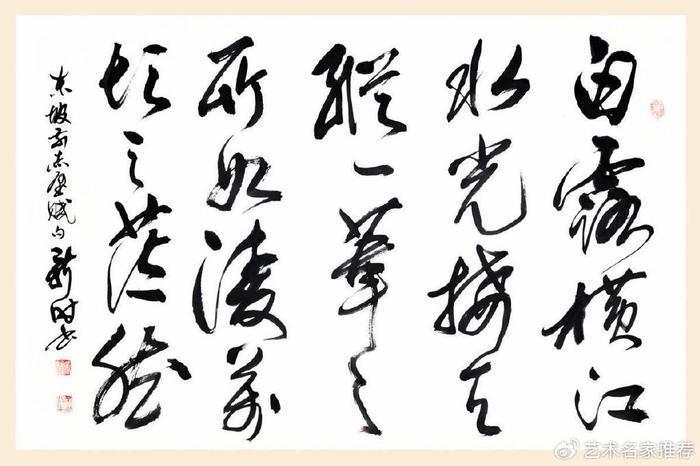 白露横江
水光接天
纵一苇之
所如凌万
顷之茫然
东坡前赤壁赋句 新时书
艺术名家推荐